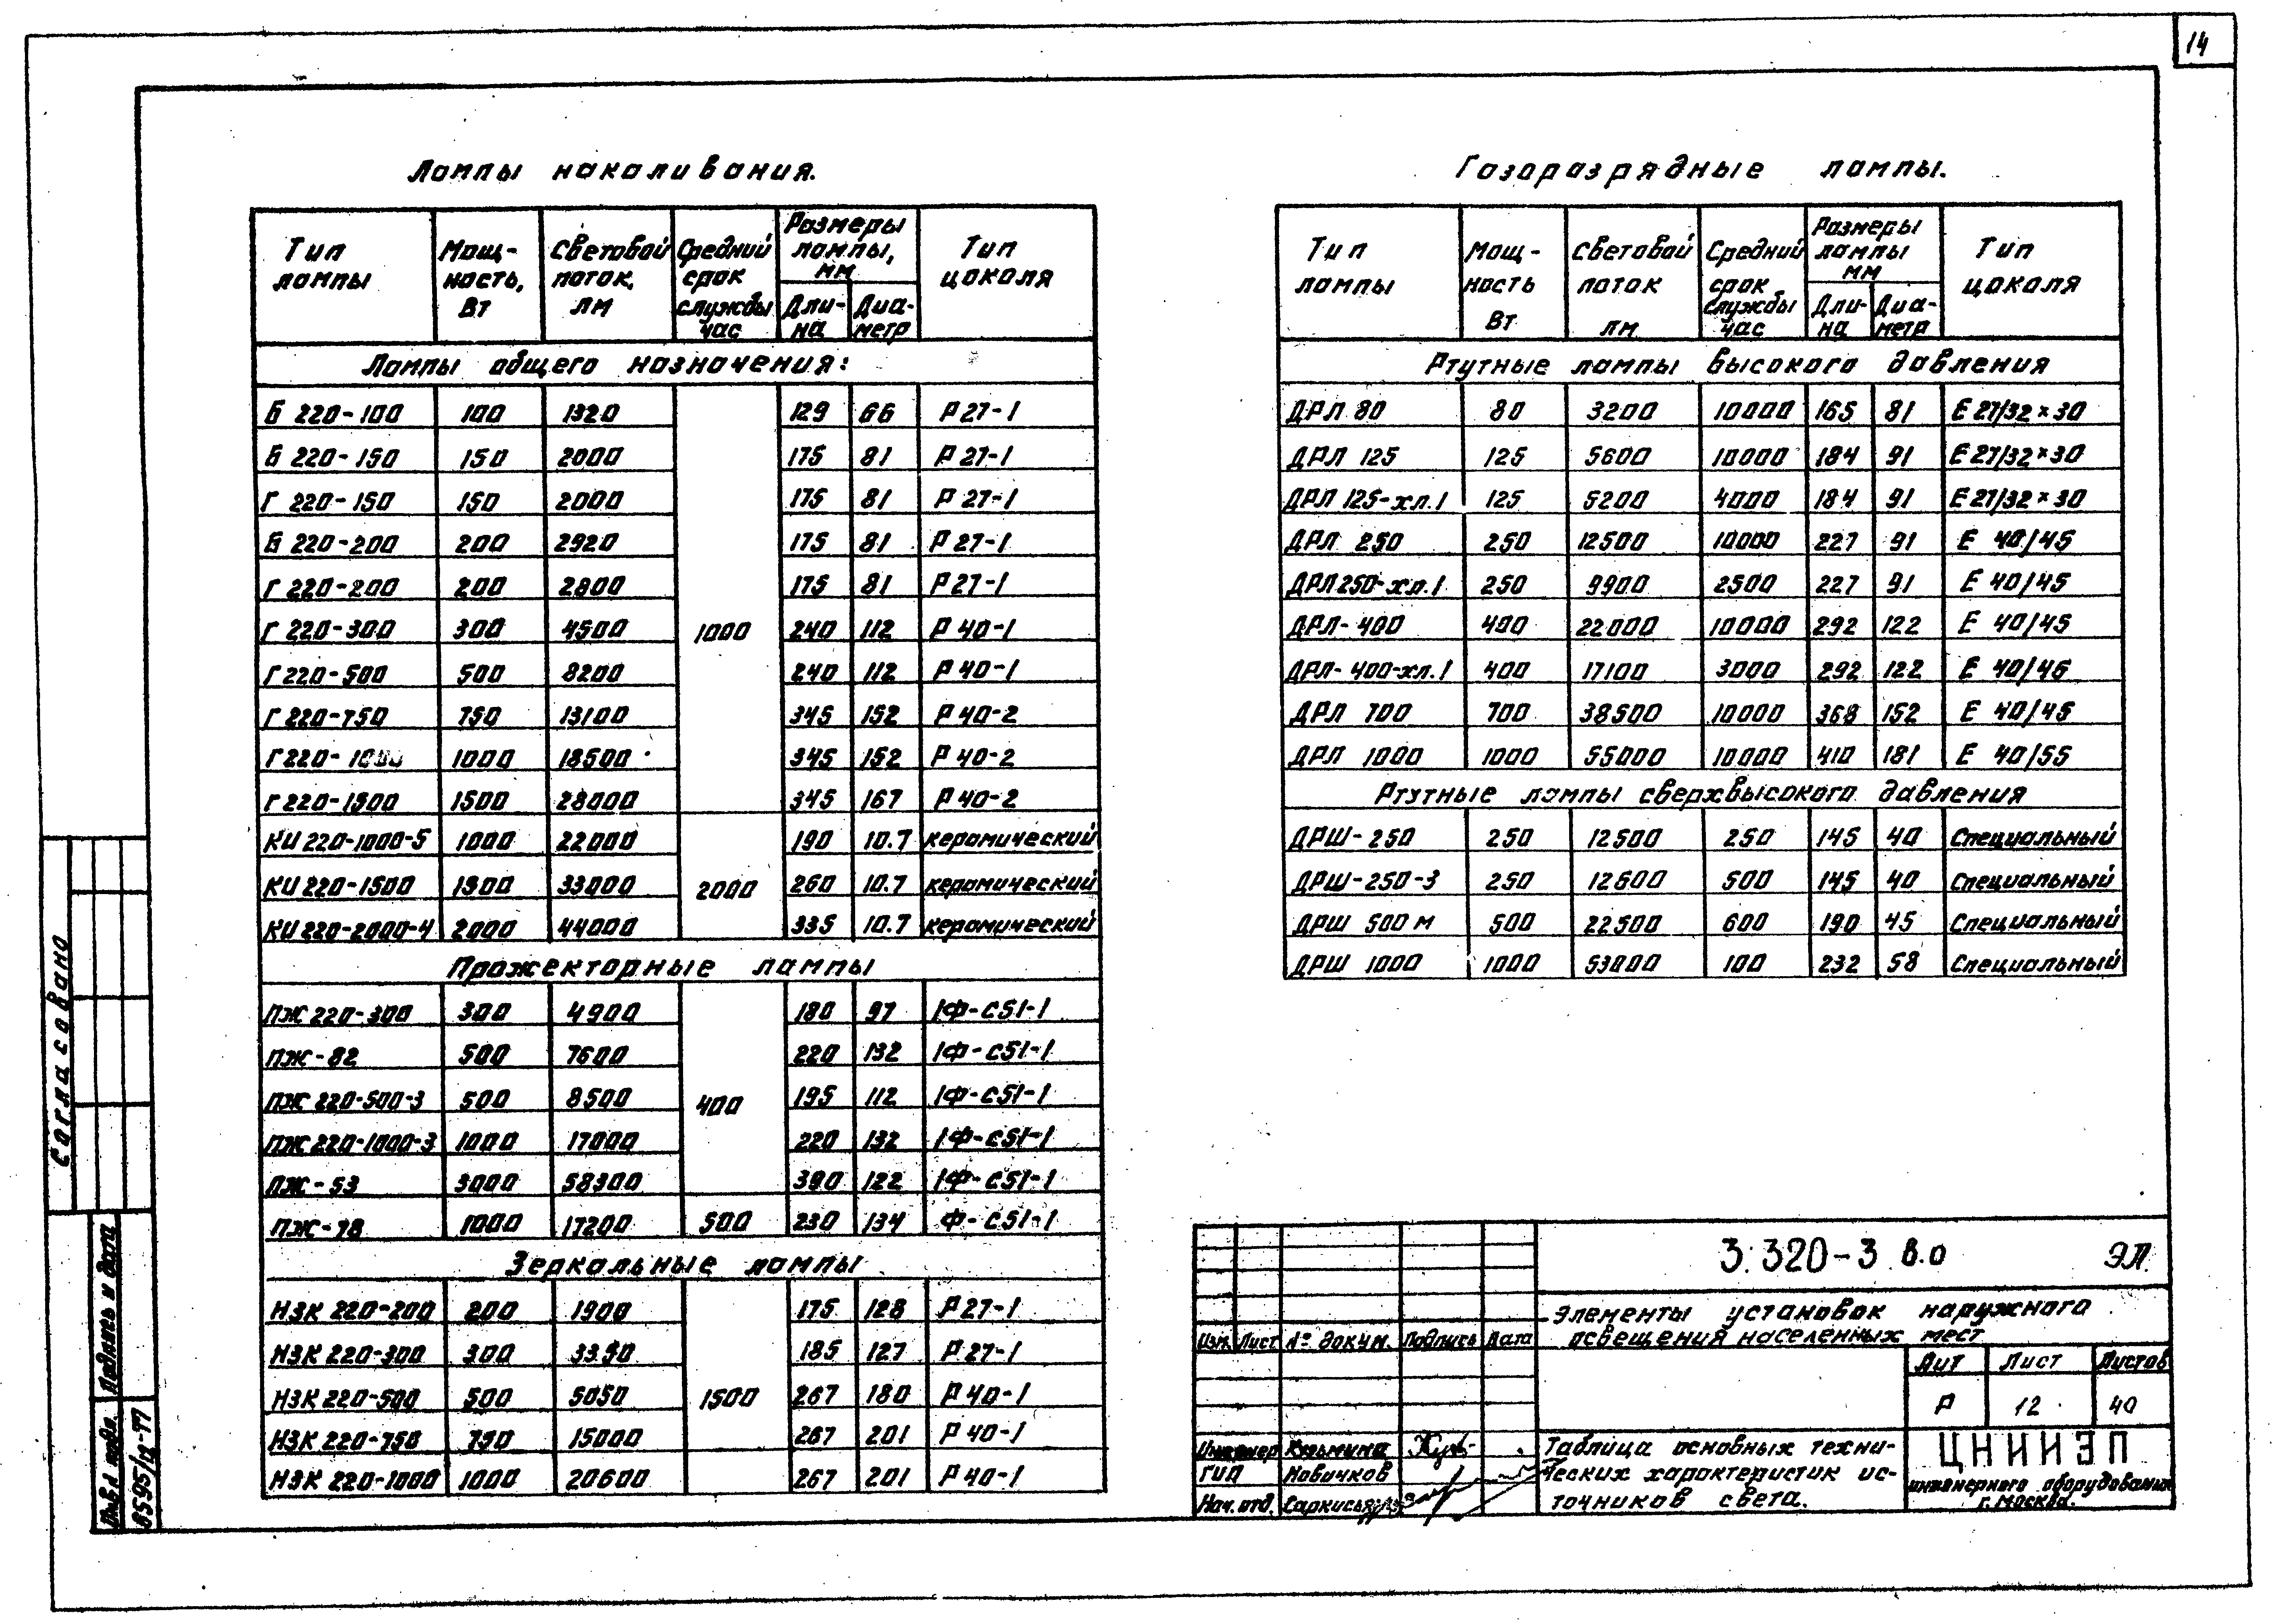 14
Лампы накаливания.
Тип лампы | Мощ-ность, Вт | Световой поток, лм | Средний срок службы час | Размеры лампы, мм | Тип цоколя
Дли-на | Диа-метр
Лампы общего назначения:
Б 220-100 | 100 | 1320 | 129 | 66 | Р 27-1
Б 220-150 | 150 | 2000 | 175 | 81 | Р 27-1
Г 220-150 | 150 | 2000 | 175 | 81 | Р 27-1
Б 220-200 | 200 | 2920 | 175 | 81 | Р 27-1
Г 220-200 | 200 | 2800 | 175 | 81 | Р 27-1
Г 220-300 | 300 | 4500 | 1000 | 240 | 112 | Р 40-1
Г 220-500 | 500 | 8200 | 240 | 112 | Р 40-1
Г 220-750 | 750 | 13100 | 345 | 152 | Р 40-2
Г 220-1000 | 1000 | 18500 | 345 | 152 | Р 40-2
Г 220-1500 | 1500 | 28000 | 345 | 167 | Р 40-2
КИ 220-1000-5 | 1000 | 22000 | 190 | 10.7 | керамический
КИ 220-1500 | 1500 | 33000 | 2000 | 260 | 10.7 | керамический
КИ 220-2000-4 | 2000 | 44000 | 335 | 10.7 | керамический
Прожекторные лампы
ПЖ 220-300 | 300 | 4900 | 180 | 97 | 1Ф-С51-1
ПЖ-82 | 500 | 7600 | 220 | 132 | 1Ф-С51-1
ПЖ 220-500-3 | 500 | 8500 | 400 | 195 | 112 | 1Ф-С51-1
ПЖ 220-1000-3 | 1000 | 17000 | 220 | 132 | 1Ф-С51-1
ПЖ-53 | 3000 | 58300 | 390 | 122 | 1Ф-С51-1
ПЖ-78 | 1000 | 17200 | 500 | 230 | 134 | Ф-С51-1
Зеркальные лампы
НЗК 220-200 | 200 | 1900 | 175 | 128 | Р 27-1
НЗК 220-300 | 300 | 3350 | 185 | 127 | Р 27-1
НЗК 220-500 | 500 | 5050 | 1500 | 267 | 180 | Р 40-1
НЗК 220-750 | 750 | 15000 | 267 | 201 | Р 40-1
НЗК 220-1000 | 1000 | 20600 | 267 | 201 | Р 40-1
Газоразрядные лампы.
Тип лампы | Мощ-ность Вт | Световой поток лм | Средний срок службы час | Размеры лампы мм | Тип цоколя
Дли-на | Диа-метр
Ртутные лампы высокого давления
ДРЛ 80 | 80 | 3200 | 10000 | 165 | 81 | Е 27/32×30
ДРЛ 125 | 125 | 5600 | 10000 | 184 | 91 | Е 27/32×30
ДРЛ 125-хл.1 | 125 | 5200 | 4000 | 184 | 91 | Е 27/32×30
ДРЛ 250 | 250 | 12500 | 10000 | 227 | 91 | Е 40/45
ДРЛ 250-хл.1 | 250 | 9900 | 2500 | 227 | 91 | Е 40/45
ДРЛ-400 | 400 | 22000 | 10000 | 292 | 122 | Е 40/45
ДРЛ-400-хл.1 | 400 | 17100 | 3000 | 292 | 122 | Е 40/46
ДРЛ 700 | 700 | 38500 | 10000 | 368 | 152 | Е 40/45
ДРЛ 1000 | 1000 | 55000 | 10000 | 410 | 181 | Е 40/55
Ртутные лампы сверхвысокого давления
ДРШ-250 | 250 | 12500 | 250 | 145 | 40 | Специальный
ДРШ-250-3 | 250 | 12600 | 500 | 145 | 40 | Специальный
ДРШ 500 м | 500 | 22500 | 600 | 190 | 45 | Специальный
ДРШ 1000 | 1000 | 53000 | 100 | 232 | 58 | Специальный
Согласовано
Подпись и дата
Инв.№ подл.
8595/12-77
3.320-3 в.о ЭЛ
Элементы установок наружного
освещения населенных мест
Изм. Лист № докум. Подпись Дата
Лит Лист Листов
Р 12 40
Инженер Кузьмина
ГИП Новичков
Нач. отд.
Таблица основных техни-
ческих характеристик ис-
точников света.
ЦНИИЭП
инженерного оборудования
г. Москва.